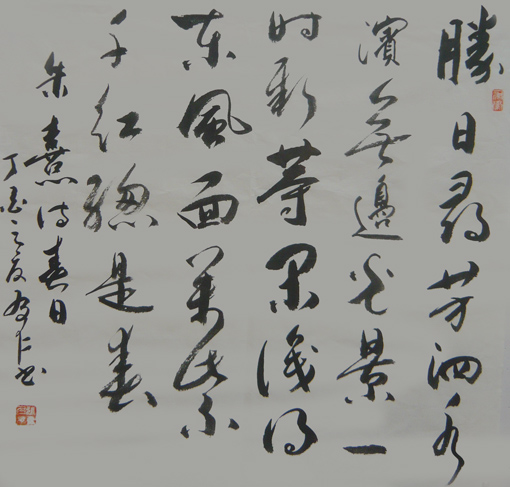 勝日尋芳泗水
濱無邊光景一
时新等闲識得
东風面萬紫
千紅總是春
朱熹诗春日
丁酉之夏仁书